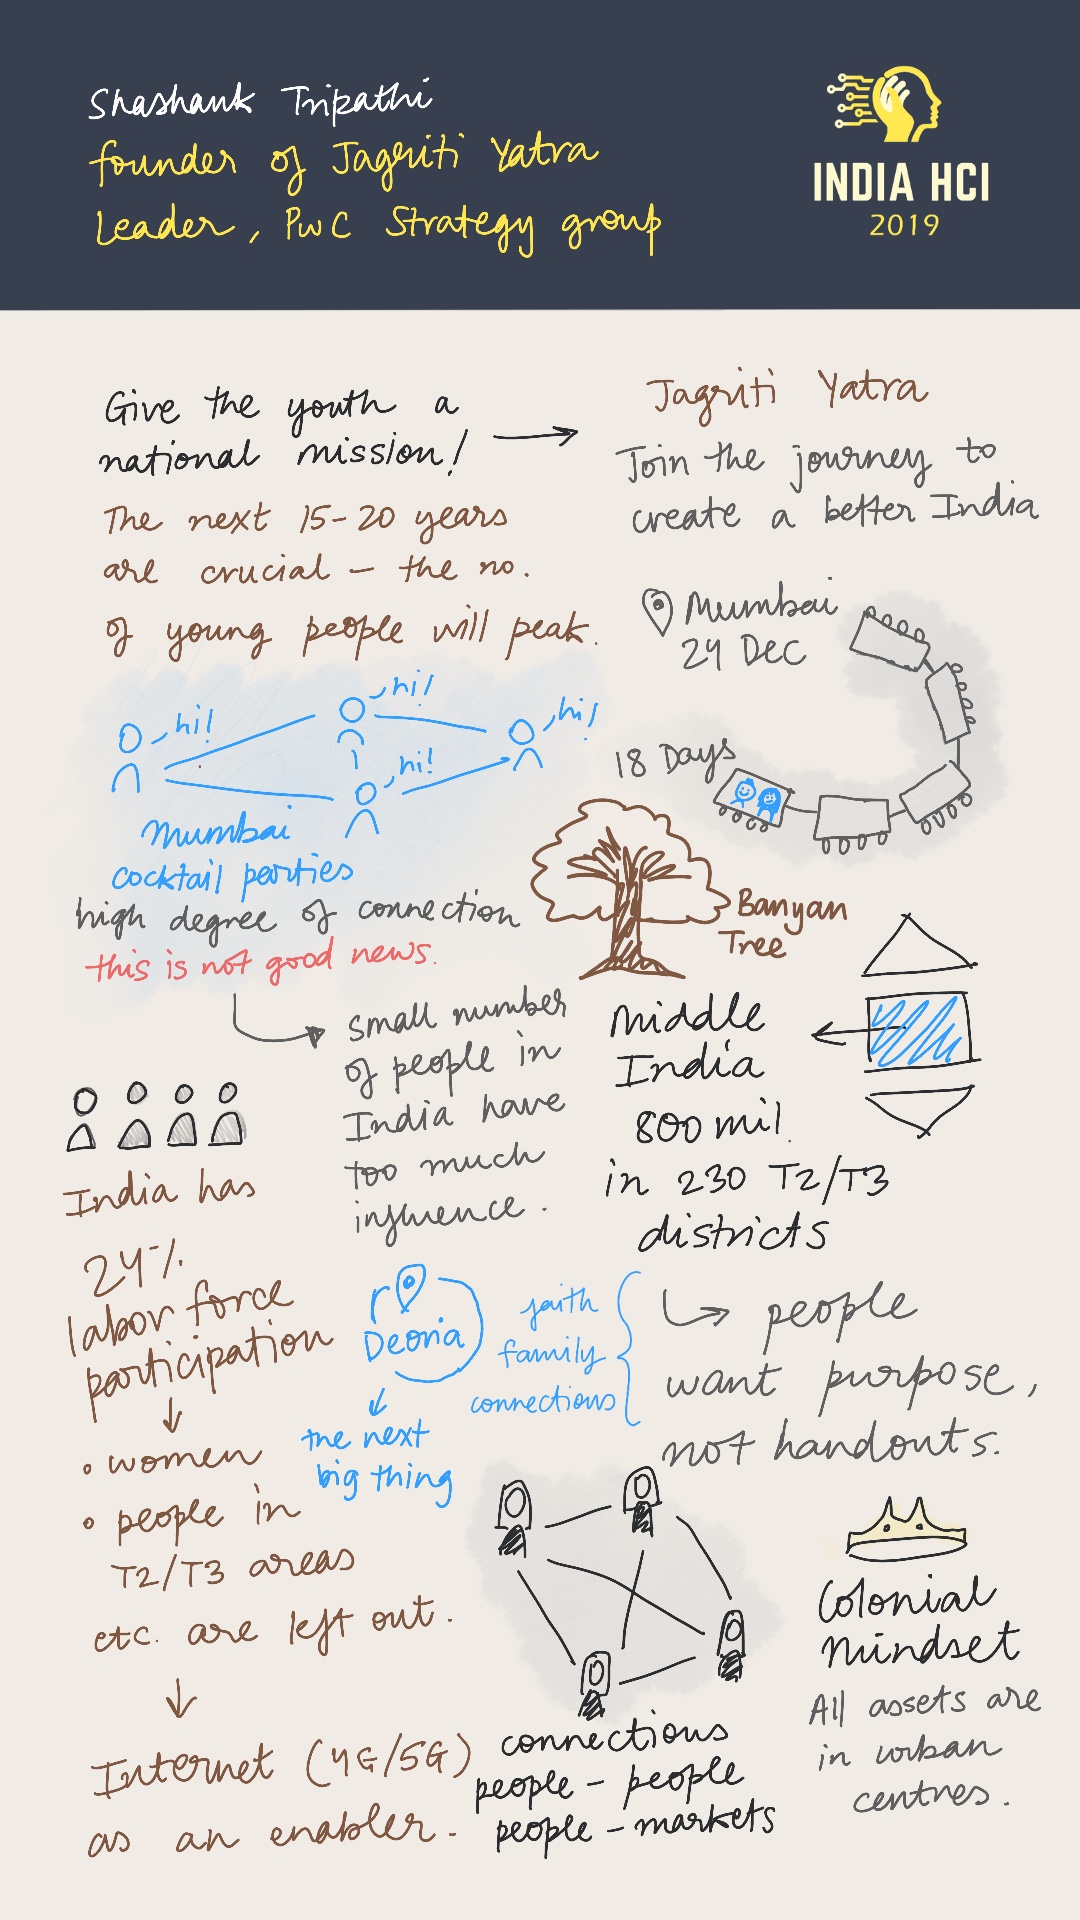 Shashank Tripathi
founder of Jagriti Yatra
Leader, PwC Strategy group
INDIA HCI
2019
Give the youth a
national mission!
The next 15-20 years
are crucial – the no.
of young people will peak.
Jagriti Yatra
Join the journey to
create a better India
Mumbai
24 DEC
18 Days
hi!
hi!
hi!
hi!
Mumbai
cocktail parties
high degree of connection
this is not good news.
small number
of people in
India have
too much
influence.
Banyan
Tree
Middle
India
800 mil.
in 230 T2/T3
districts
people
want purpose,
not handouts.
faith
family
connections
Deoria
the next
big thing
India has
24%
labor force
participation
women
people in
T2/T3 areas
etc. are left out.
Internet (4G/5G)
as an enabler.
connections
people – people
people – markets
Colonial
Mindset
All assets are
in urban
centres.